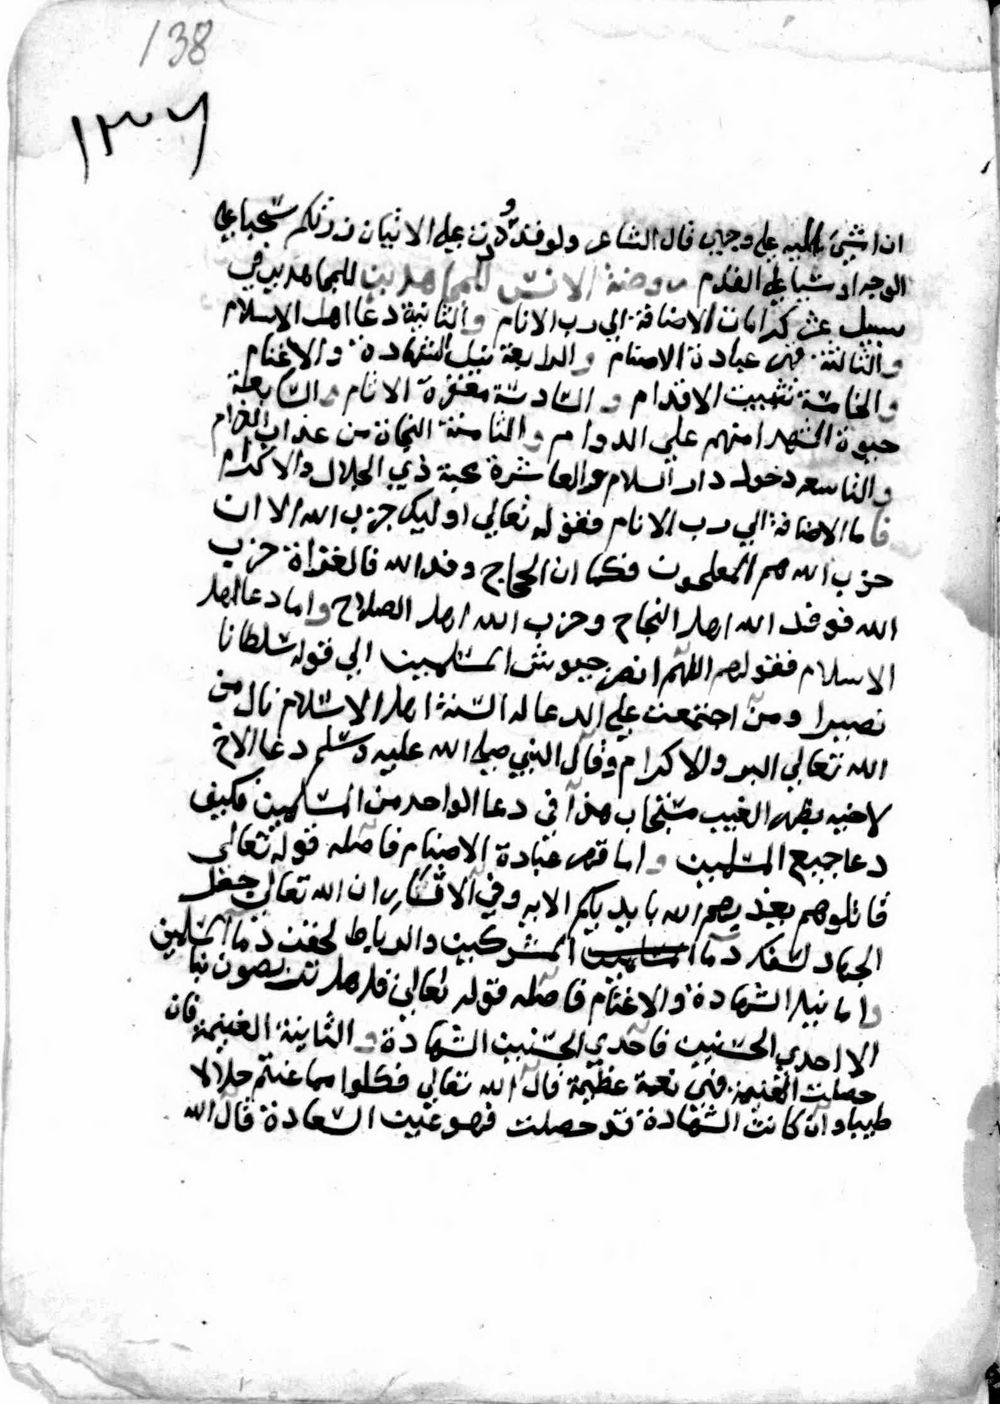 138
١٣٧
ان امشي اليه علي وجهي قال الشاعر ولو قدرت علي الاتيان زرتكم سحبا علي
الوجه او مشيا علي القدم روضة الانس للمجاهدين للمجاهدين في
سبيل عشر كرامات الاضافة الي رب الانام والثانية دعا اهل الاسلام
والثالثة قهر عبادة الاصنام والرابعة نيل الشهادة والاغنام
والخامسة تثبيت الاقدام والسادسة مغفرة الاثام والسابعة
حيوة الشهدا منهم علي الدوام والثامنة النجاة من عذاب الغرام
والتاسعه دخول دار السلام والعاشرة محبة ذي الجلال والاكرام
فاما الاضافة الي رب الانام فقوله تعالي اوليك حزب الله الا ان
حزب الله هم المفلحون فكما ان الحجاج وفد الله فالغزاة حزب
الله فوفد الله اهل النجاح وحزب الله اهل الصلاح واما دعا اهل
الاسلام فقولهم اللهم انصر جيوش المسلمين الي قوله سلطانا
نصيرا ومن اجتمعت علي الدعا له السنة اهل الاسلام نال من
الله تعالي البر والاكرام وقال النبي صلي الله عليه وسلم دعا الاخ
لاخيه بظهر الغيب مستجاب هذا في دعا الواحد من المسلمين فكيف
دعا جميع المسلمين واما قهر عبادة الاصنام فاصله قوله تعالي
قاتلوهم يعذبهم الله بايديكم الايه وفي الاثار ان الله تعالي جعل
الجهاد لسفك دما المشركين والرباط لحقن دما المسلمين
واما نيل الشهادة والاغنام فاصله قوله تعالي قل هل تربصون بنا
الا احدي الحسنيين فاحدي الحسنيين الشهادة والثانية الغنيمة فان
حصلت الغنيمة فهي نعمة عظيمة قال الله تعالي فكلوا مما غنمتم حلالا
طيبا وان كانت الشهادة قد حصلت فهو غيت السعادة قال الله